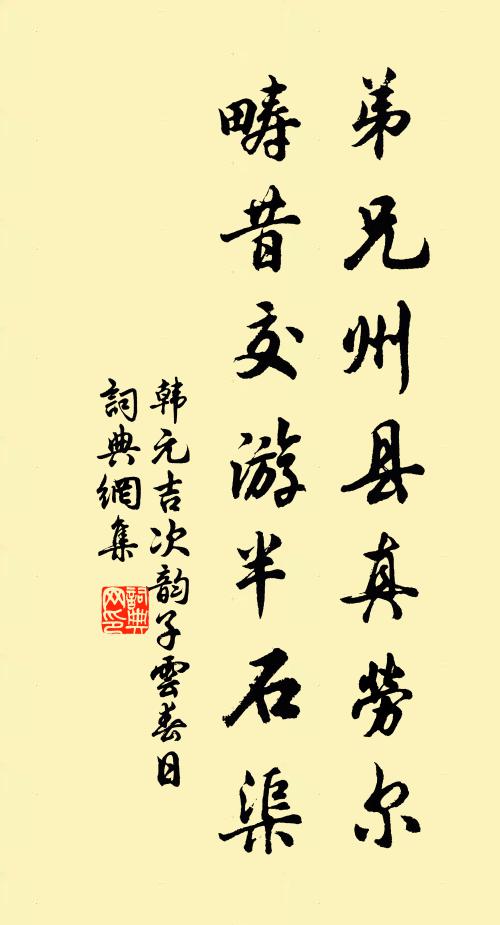 弟兄州县真劳尔
畴昔交游半石渠
韩元吉次韵子雲春日
詞典網集
詞典网印